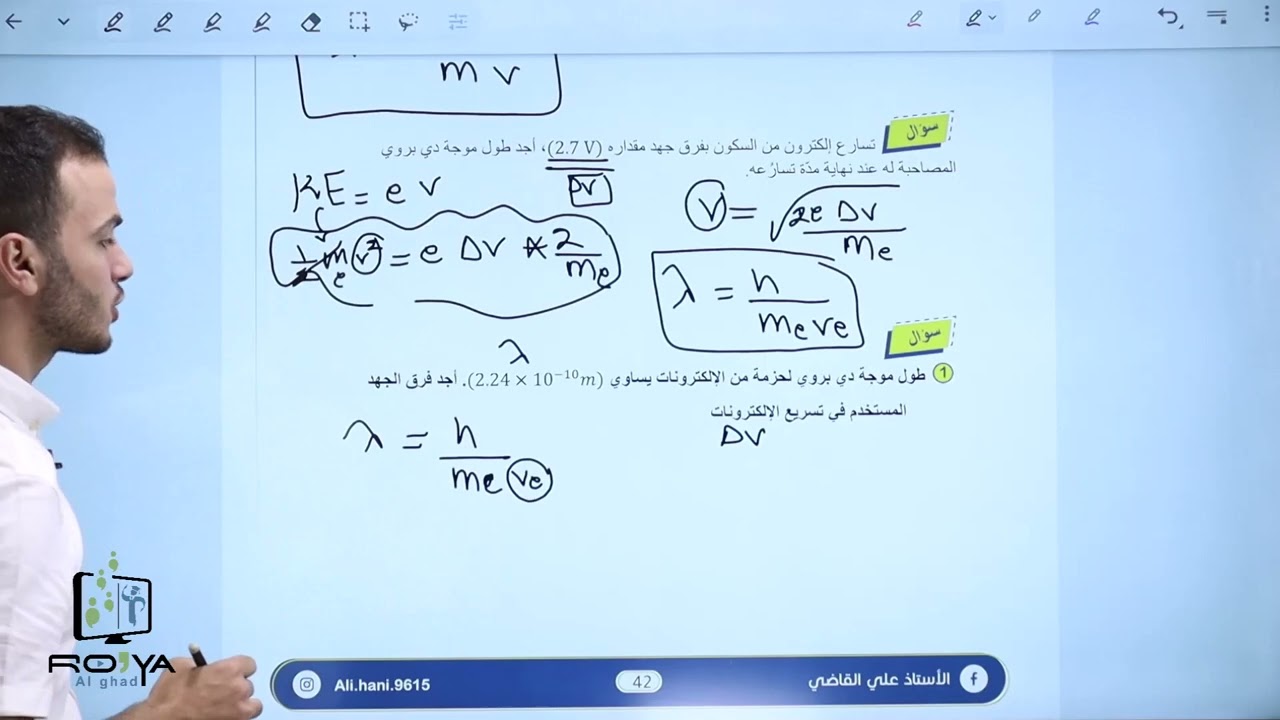 m v
سؤال
تسارع إلكترون من السكون بفرق جهد مقداره (2.7 V)، أجد طول موجة دي بروي
المصاحبة له عند نهاية مدّة تسارُعه.
KE = e v
DV
v = √2e DV / me
1/2 me v² = e DV * 2/me
λ = h / me ve
سؤال
λ
1 طول موجة دي بروي لحزمة من الإلكترونات يساوي (2.24 × 10⁻¹⁰m). أجد فرق الجهد
المستخدم في تسريع الإلكترونات
DV
λ = h / me ve
RO'YA
Al ghad
Ali.hani.9615
42
الأستاذ علي القاضي